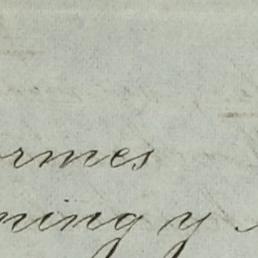 ormes
ning y